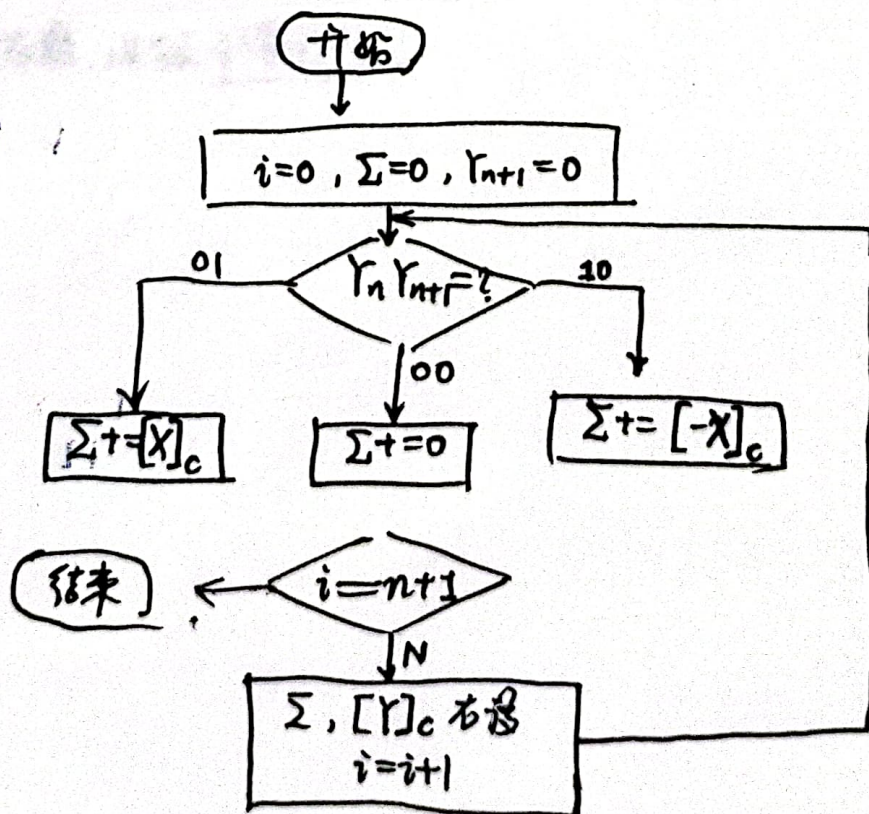 开始
i=0 , Σ=0 , Yₙ₊₁=0
Yₙ Yₙ₊₁=?
01
10
00
Σ+=[X]c
Σ+=0
Σ+=[-X]c
结束
i==n+1
N
Σ , [Y]c 右移
i=i+1